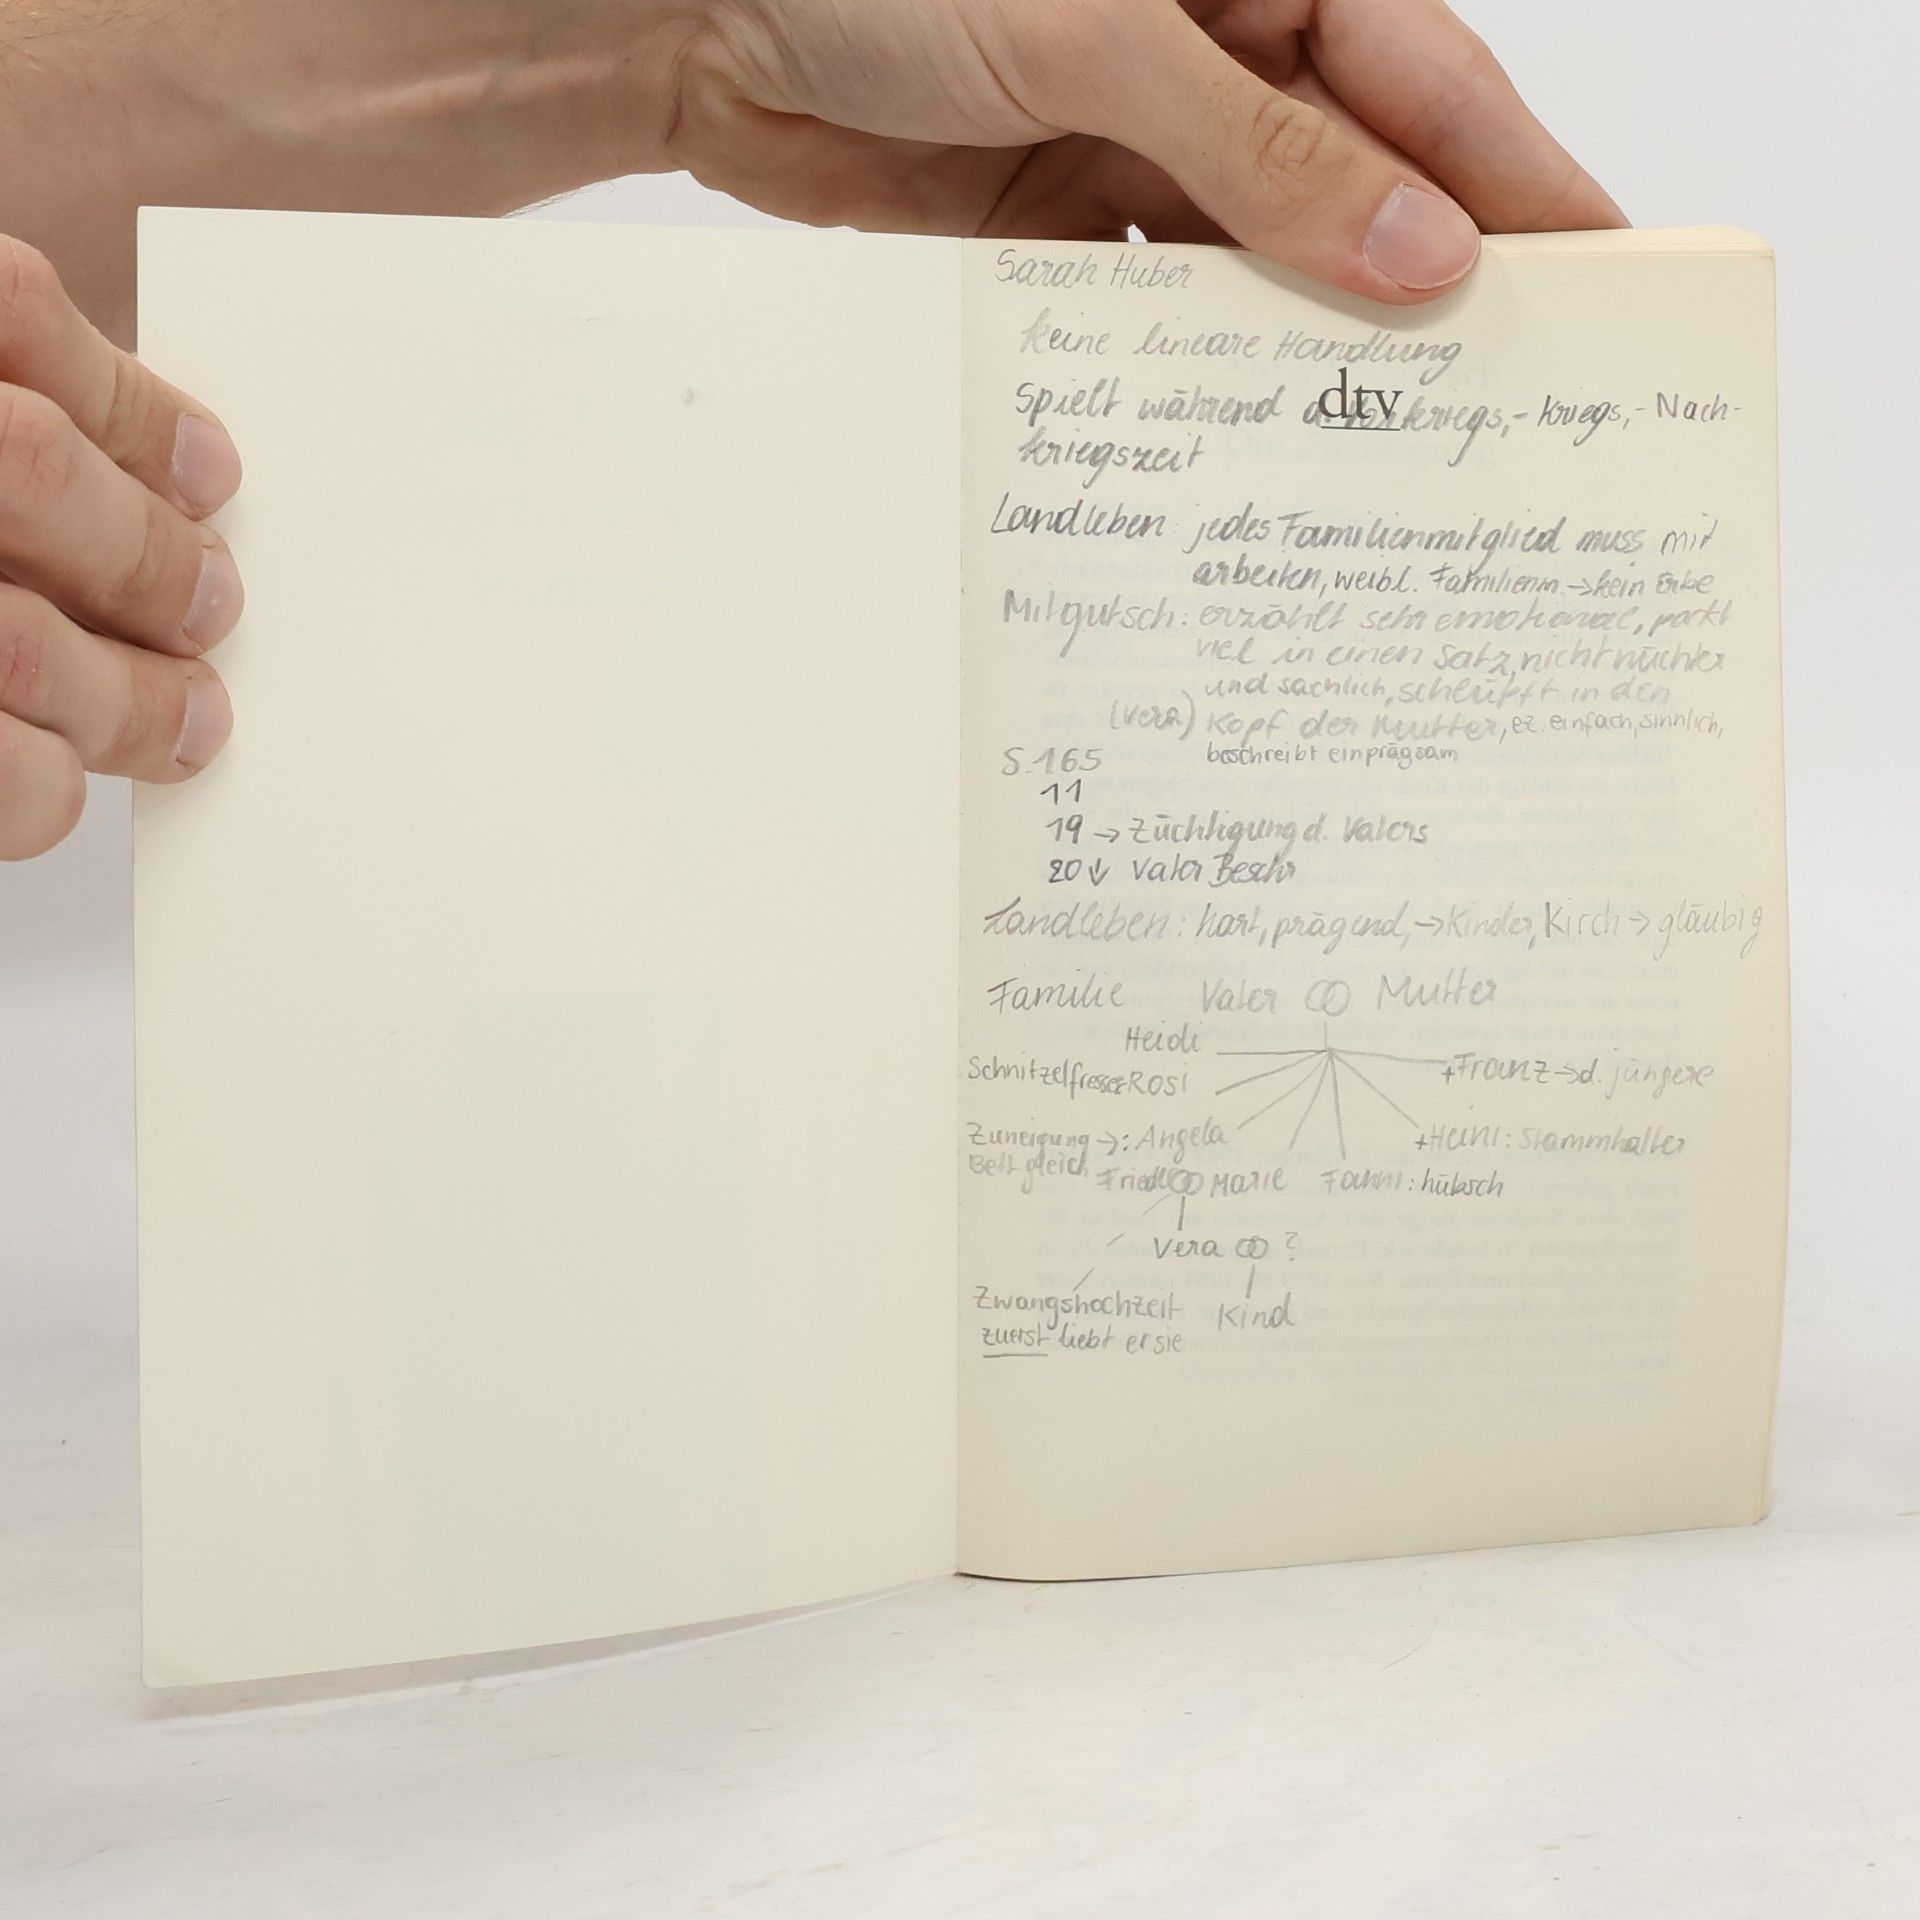 Sarah Huber
keine lineare Handlung
dtv
Spielt während d. Vorkriegs,- Kriegs,- Nach-
kriegszeit
Landleben: jedes Familienmitglied muss mit
arbeiten, weibl. Familienm → kein Erbe
Mitgutsch: erzählt sehr emotional, packt
viel in einen Satz, nicht nüchter
und sachlich, schlüpft in den
(Vera) Kopf der Mutter, ez. einfach, sinnlich,
beschreibt einprägsam
S. 165
11
19 → Züchtigung d. Vaters
20 ↓ Vater Beschr
Landleben: hart, prägend, → Kinder, Kirch → gläubig
Familie Vater ⚭ Mutter
Heidi
Schnitzelfresser Rosi
+Franz → d. jüngere
Zuneigung →: Angela
+Heini: Stammhalter
Bett gleich
Friedl ⚭ Marie Fanni: hübsch
Vera ⚭ ?
Zwangshochzeit Kind
zuerst liebt er sie